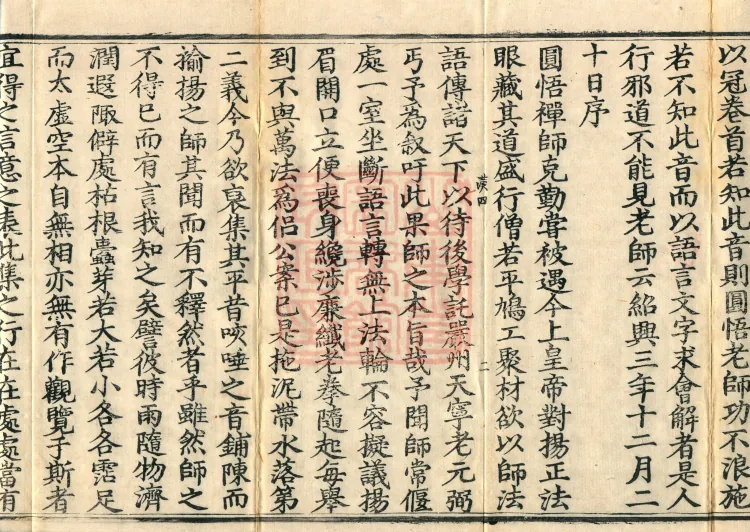 以冠卷首若知此音則圓悟老師功不浪施
若不知此音而以語言文字求會解者是人
行邪道不能見老師云紹興三年十二月二
十日序
圓悟禪師克勤嘗被遇今上皇帝對揚正法
眼藏其道盛行僧若平鳩工聚材欲以師法
語傳諸天下以待後學託嚴州天寧老元弼
丐予為叙吁此果師之本旨哉予聞師常偃
處一室坐斷語言轉無上法輪不容擬議揚
眉開口立便喪身纔涉廉纖老拳隨起每舉
到不與萬法爲侶公案已是拖泥帶水落第
二義今乃欲裒集其平昔咳唾之音鋪陳而
揄揚之師其聞而有不釋然者乎雖然師之
不得已而有言我知之矣譬彼時雨隨物濟
潤遐陬僻處枯根蠹芽若大若小各各霑足
而太虚空本自無相亦無有作觀覽于斯者
宜得之言意之表此集之行在在處處當有
二